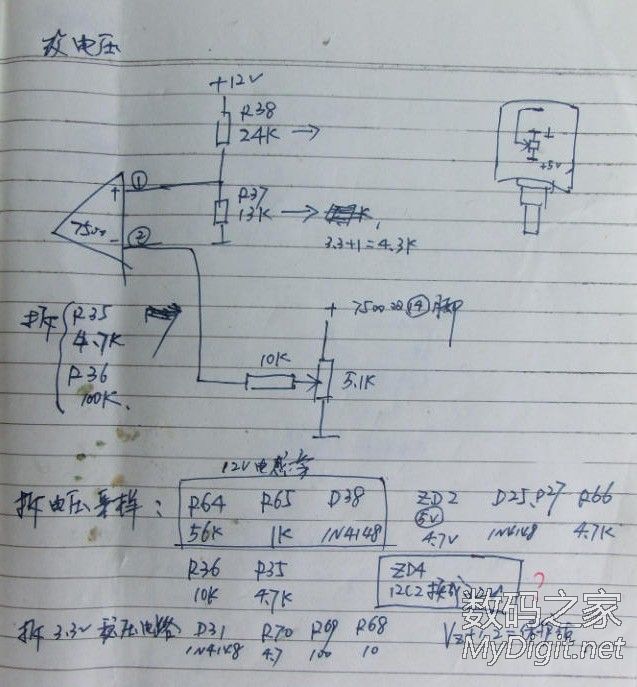 改电压
+12V
R38
24K →
+
①
R37
13K →
3.3+1=4.3K
7500
-
②
+5V
拆
R35
4.7K
R36
100K
+ 7500 ⑭脚
10K
5.1K
12V电感旁
拆电压采样：
R64 R65 D38 ZD2 D25、D27 R66
56K 1K 1N4148 5V 4.7V 1N4148 4.7K
R36 R35 ZD4
10K 4.7K 12C2 ?
拆 3.3V 稳压电路 D31 R70 R69 R68
1N4148 4.7 100 10
数码之家
MyDigit.net